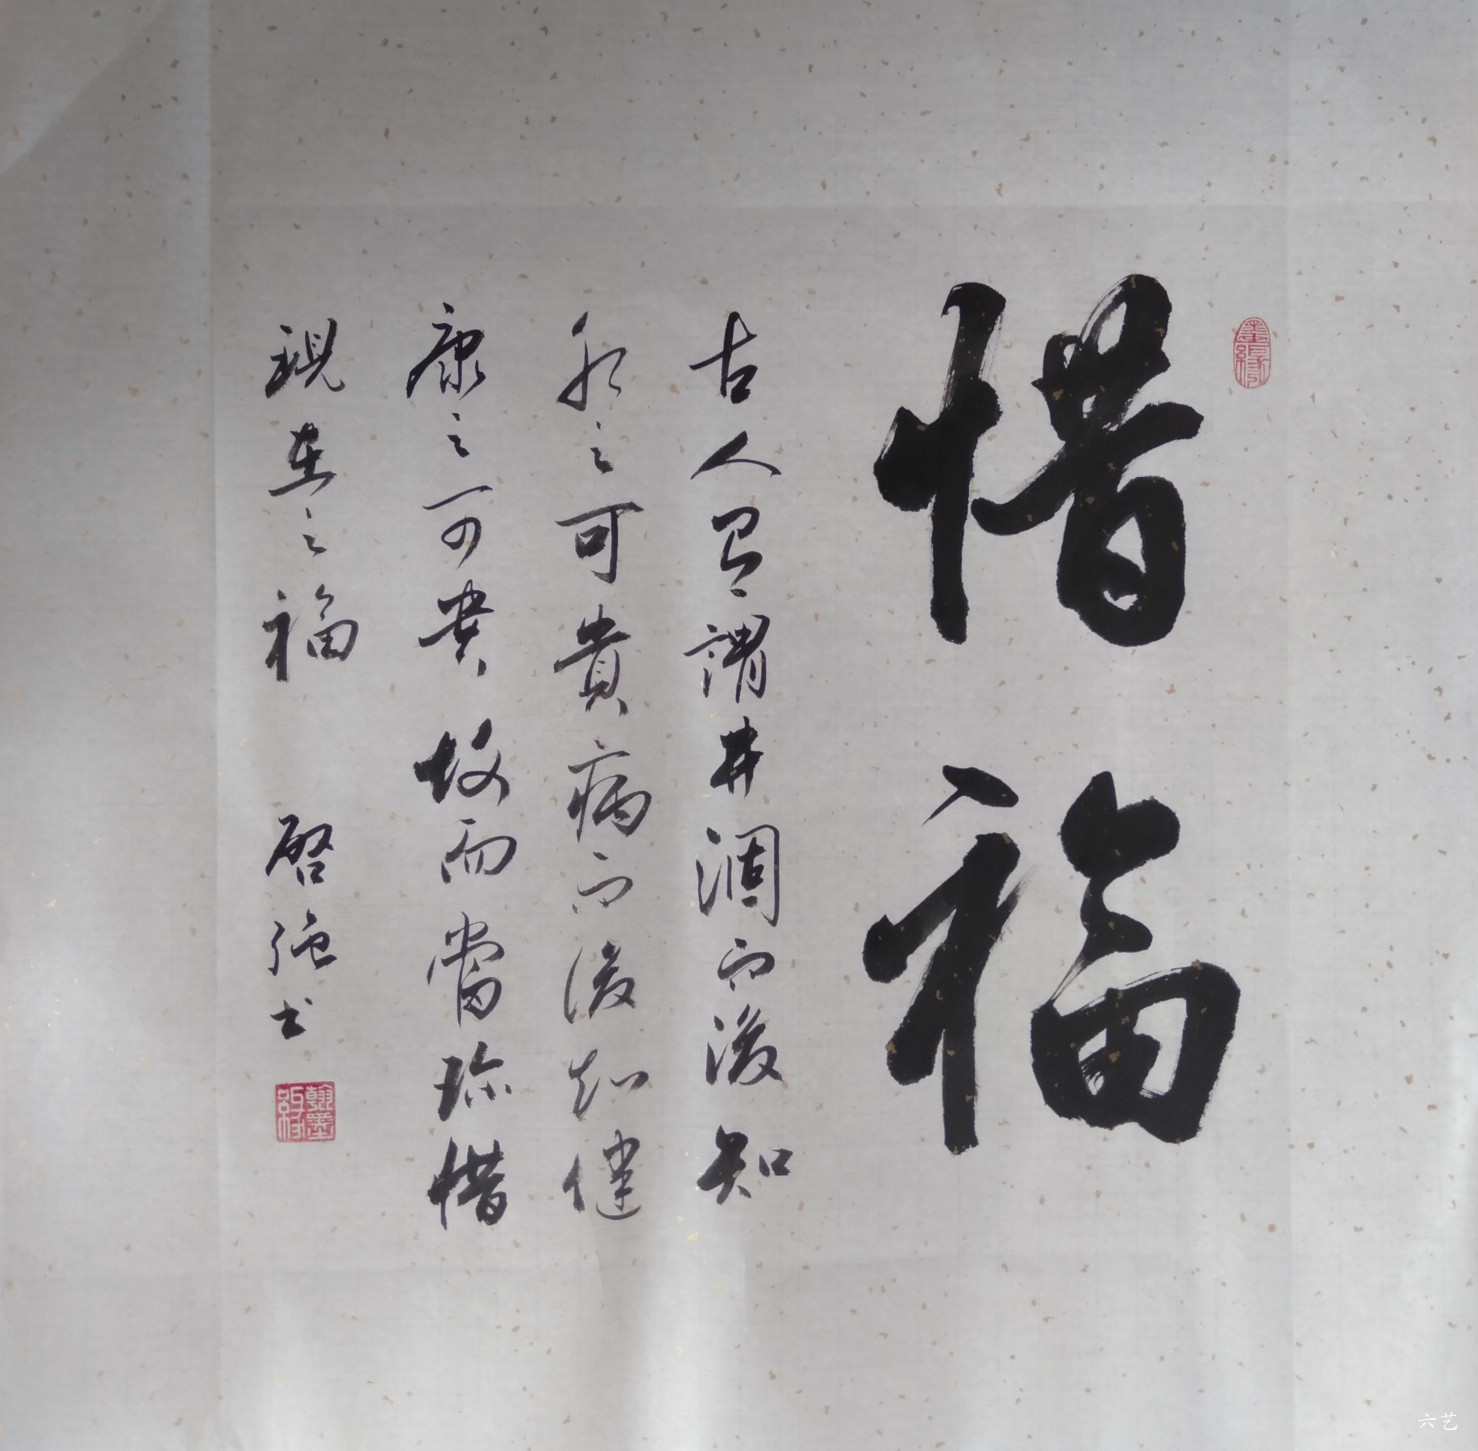 墨緣
惜福
古人所謂井涸而後知
水之可貴病而後知健
康之可貴故而當珍惜
現在之福 啓強书
翰墨緣
六艺